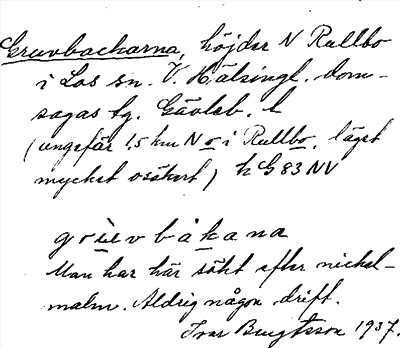 Gruvbackarna, höjder N Rullbo
i Los sn. V. Hälsingl. dom-
sagas tg. Gävleb. l
(ungefär 1,5 km N o i Rullbo, läget
mycket osäkert) h G 83 NV
gruvbakana
Man har här sökt efter nickel-
malm. Aldrig någon drift.
Ivar Bengtsson 1937.